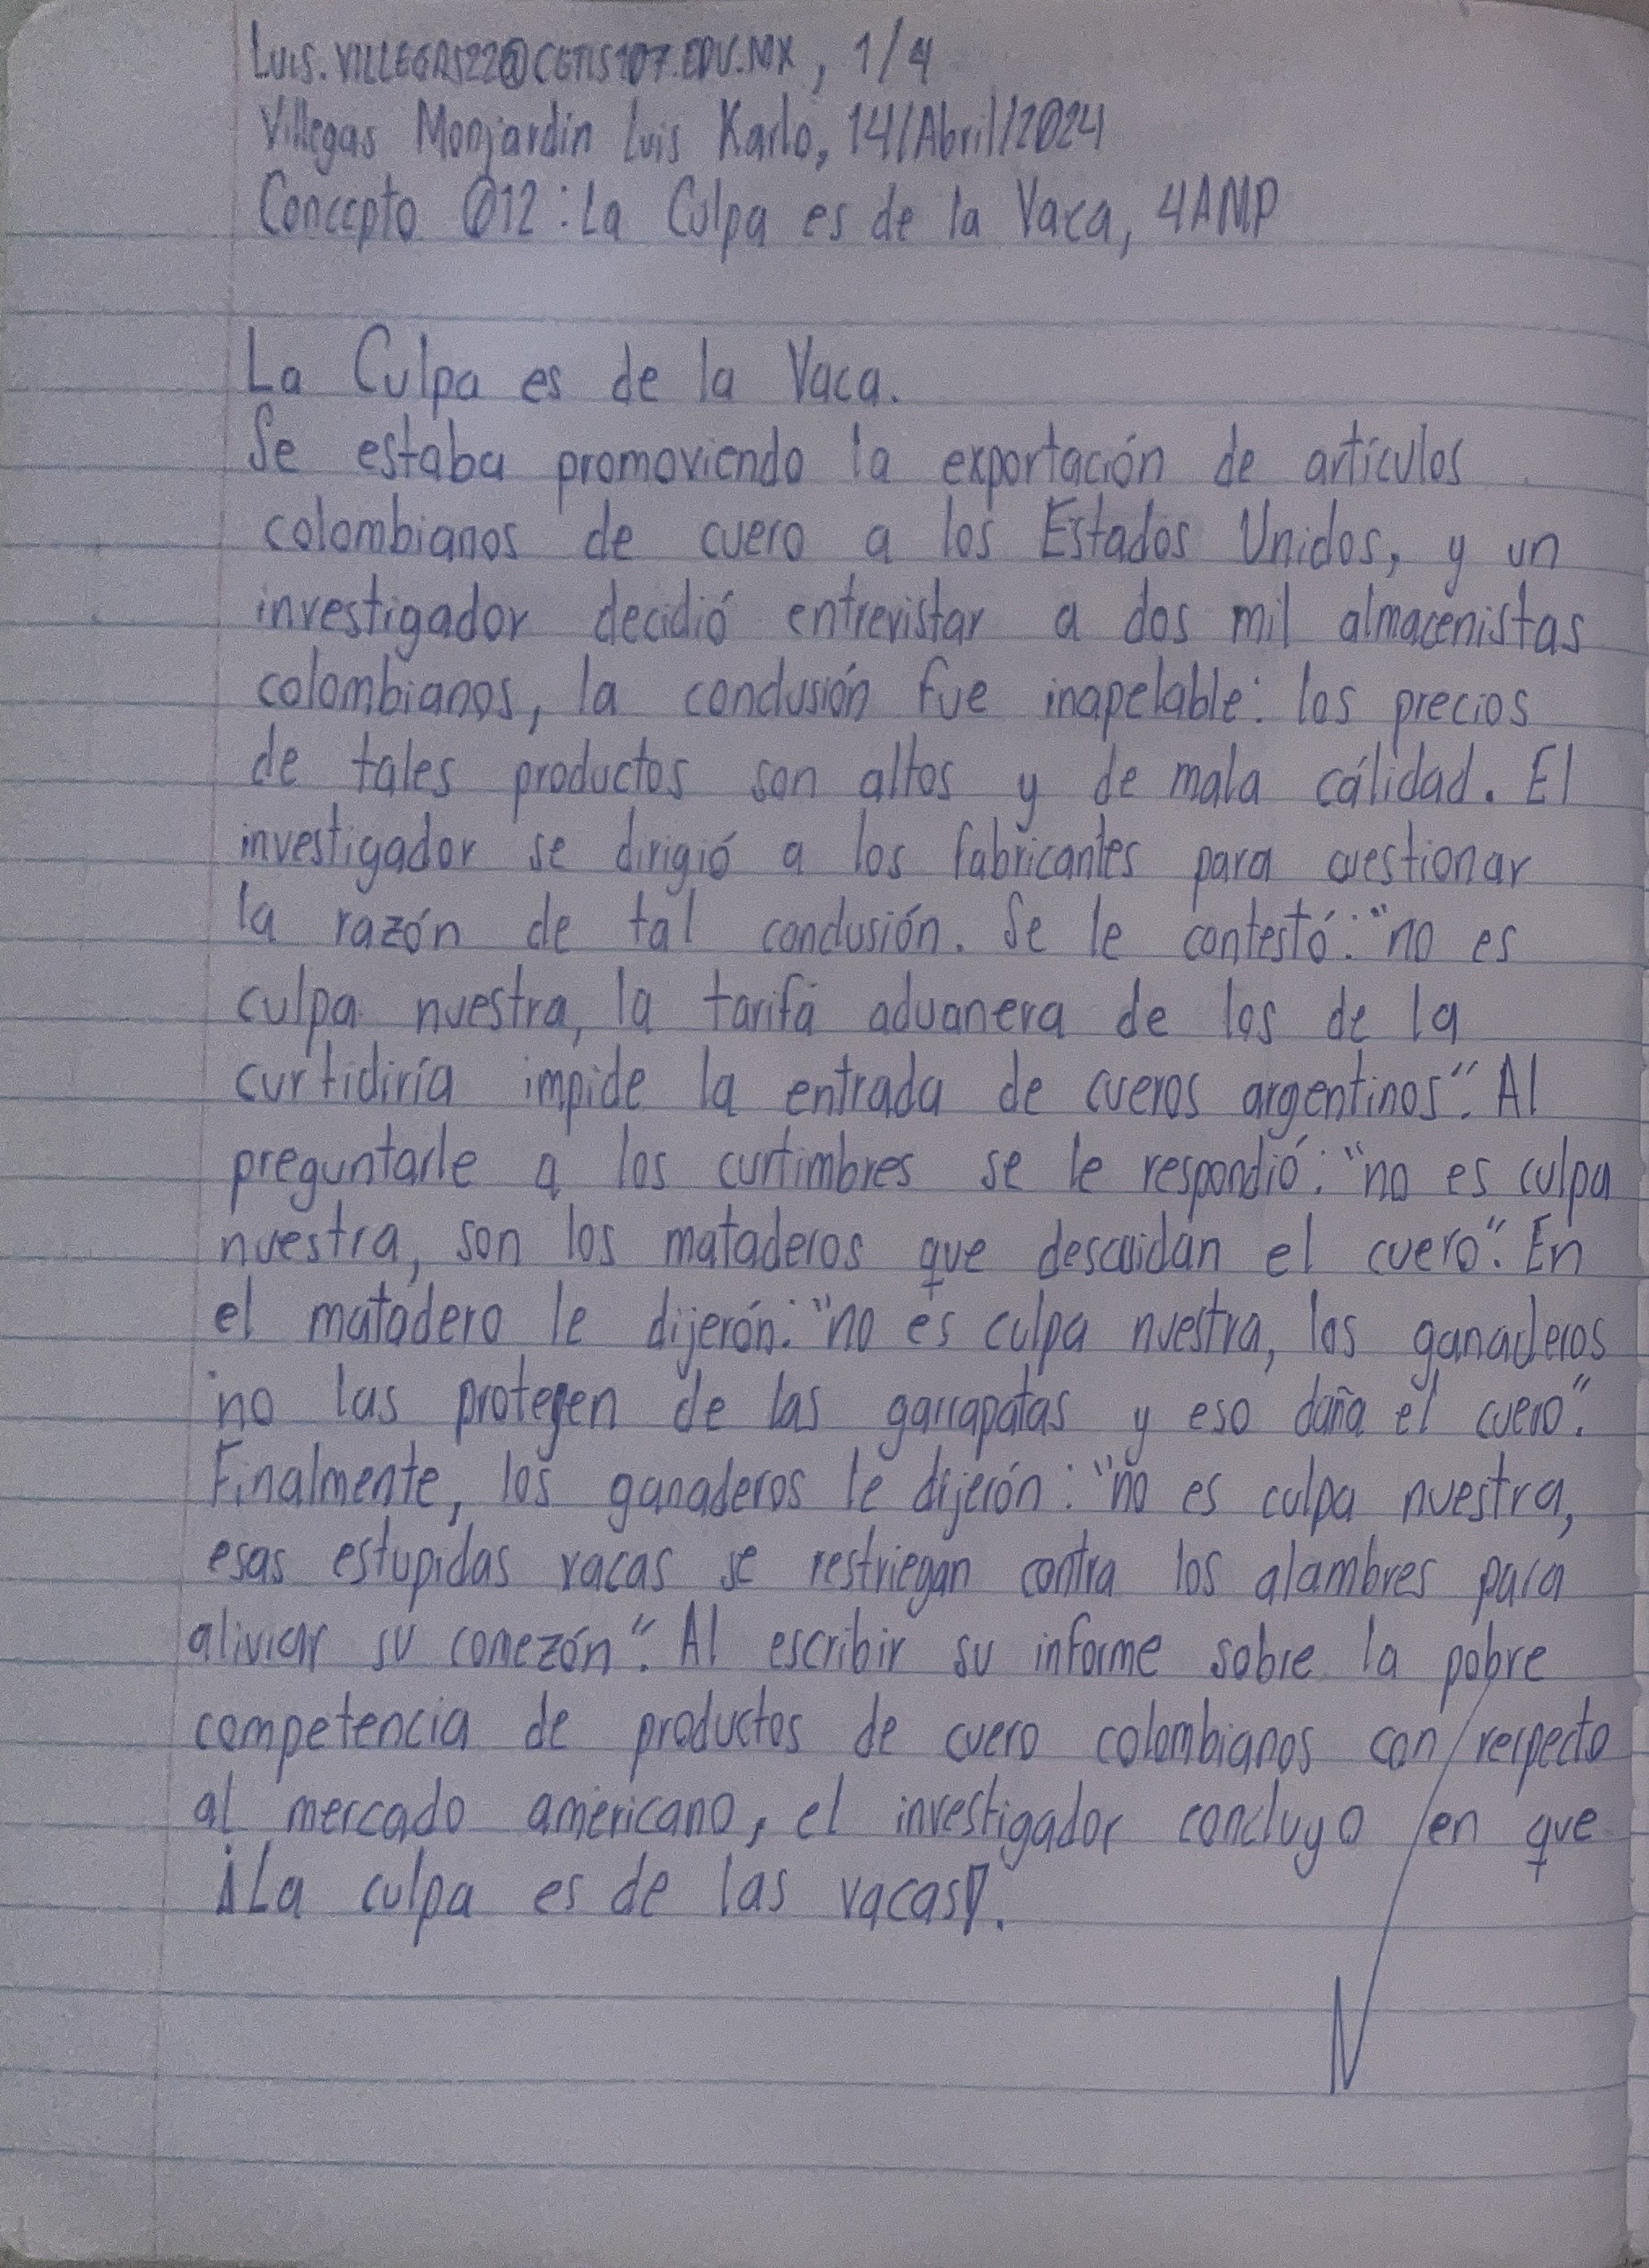 LUIS.VILLEGAS22@CETIS107.EDU.MX, 1/4
Villegas Monjardin Luis Karlo, 14/Abril/2024
Concepto 012: La Culpa es de la Vaca, 4AMP
La Culpa es de la Vaca.
Se estaba promoviendo la exportación de artículos
colombianos de cuero a los Estados Unidos, y un
investigador decidió entrevistar a dos mil almacenistas
colombianos, la conclusión fue inapelable: los precios
de tales productos son altos y de mala cálidad. El
investigador se dirigió a los fabricantes para cuestionar
la razón de tal conclusión. Se le contestó: "no es
culpa nuestra, la tarifa aduanera de los de la
curtidiría impide la entrada de cueros argentinos". Al
preguntarle a los curtimbres se le respondió: "no es culpa
nuestra, son los mataderos que descuidan el cuero". En
el matadero le dijerón: "no es culpa nuestra, los ganaderos
no las protegen de las garrapatas y eso daña el cuero".
Finalmente, los ganaderos le dijerón: "no es culpa nuestra,
esas estupidas vacas se restriegan contra los alambres para
aliviar su comezón". Al escribir su informe sobre la pobre
competencia de productos de cuero colombianos con respecto
al mercado americano, el investigador concluyo en que
¡La culpa es de las vacas!.